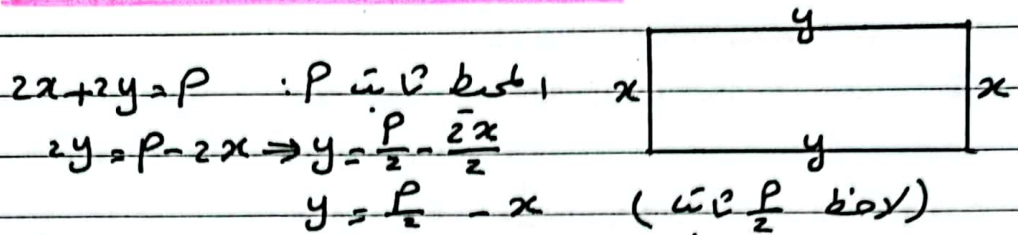 y
2x+2y=P
المحيط ثابت P :
x
x
2y=P-2x ⇒ y=P/2-2x/2
y
y=P/2-x
(لاحظ P/2 ثابت)